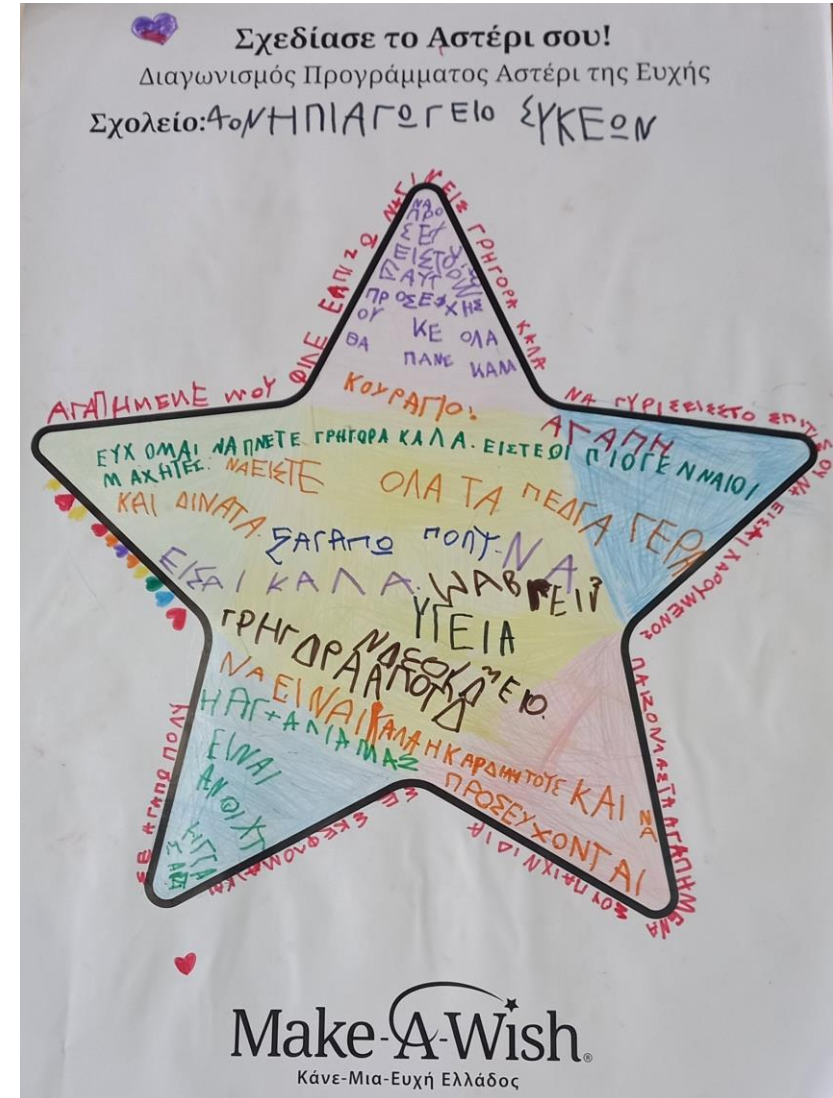 Σχεδίασε το Αστέρι σου!
Διαγωνισμός Προγράμματος Αστέρι της Ευχής
Σχολείο: 4ο ΝΗΠΙΑΓΩΓΕΙΟ ΣΥΚΕΩΝ
ΑΓΑΠΗΜΕΝΕ ΜΟΥ ΦΙΛΕ ΕΛΠΙΖΩ ΝΑ ΓΙΝΕΙΣ ΓΡΗΓΟΡΑ ΚΑΛΑ
ΝΑ ΓΥΡΙΣΕΙΣ ΣΤΟ ΣΠΙΤΙ ΣΟΥ ΝΑ ΕΙΣΑΙ ΧΑΡΟΥΜΕΝΟΣ
ΤΑ ΑΓΑΠΗΜΕΝΑ
ΣΟΥ ΠΑΙΧΝΙΔΙΑ
ΣΕ ΑΓΑΠΩ ΠΟΛΥ
ΝΑ
ΠΡΟ
ΣΕΥ
ΠΡΟΣΕΦΧΗΣ
ΟΥ ΚΕ ΟΛΑ
ΘΑ ΠΑΝΕ ΚΑΛΑ
ΚΟΥΡΑΓΙΟ!
ΑΓΑΠΗ
ΕΥΧΟΜΑΙ ΝΑ ΓΙΝΕΤΕ ΓΡΗΓΟΡΑ ΚΑΛΑ. ΕΙΣΤΕ ΟΙ ΠΙΟ ΓΕΝΝΑΙΟΙ
ΜΑΧΗΤΕΣ. ΝΑ ΕΙΣΤΕ ΟΛΑ ΤΑ ΠΕΔΓΑ ΓΕΡΑ
ΚΑΙ ΔΙΝΑΤΑ.
ΣΑΓΑΠΩ ΠΟΛΥ. ΝΑ
ΕΙΣΑΙ ΚΑΛΑ.
ΥΓΕΙΑ
ΓΡΗΓΟΡΑ ΑΠΟ ΤΟ
ΝΑ ΕΙΝΑΙ ΚΑΛΑ Η ΚΑΡΔΙΑ ΤΟΥΣ ΚΑΙ ΝΑ
ΠΡΟΣΕΥΧΟΝΤΑΙ
Η ΑΓΚΑΛΙΑ ΜΑΣ
ΕΙΝΑΙ
ΑΝΟΙΧΤ
Make-A-Wish®
Κάνε-Μια-Ευχή Ελλάδος